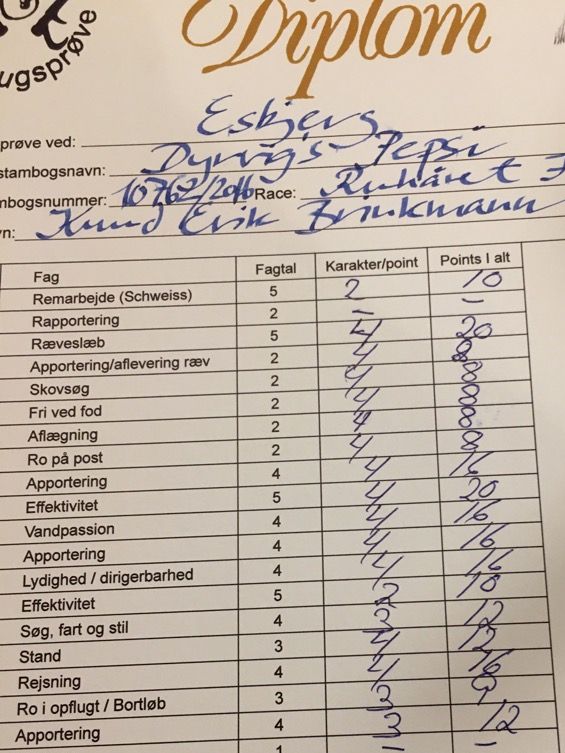 ugsprøve
Diplom
prøve ved: Esbjerg
stambogsnavn: Dyrvigs Pepsi
mbogsnummer: 10762/2016 Race: Ruhåret
n: Knud Erik Brinkmann
Fag Fagtal Karakter/point Points I alt
Remarbejde (Schweiss) 5 2 10
Rapportering 2 - -
Ræveslæb 5 4 20
Apportering/aflevering ræv 2 4 8
Skovsøg 2 4 8
Fri ved fod 2 4 8
Aflægning 2 4 8
Ro på post 2 4 8
Apportering 4 4 16
Effektivitet 5 4 20
Vandpassion 4 4 16
Apportering 4 4 16
Lydighed / dirigerbarhed 4 4 16
Effektivitet 5 2 10
Søg, fart og stil 4 3 12
Stand 3 4 12
Rejsning 4 4 16
Ro i opflugt / Bortløb 3 3 9
Apportering 4 3 12